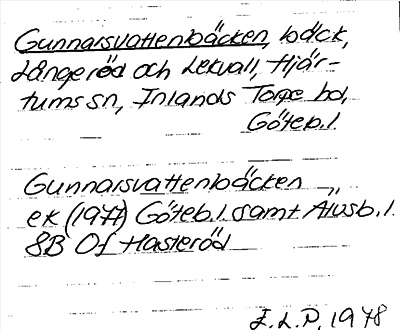 Gunnarsvattenbäcken, bäck,
Långeröd och Lekvall, Hjär-
tums sn, Inlands Torpe hd,
Göteb.l.
Gunnarsvattenbäcken
ek (1977) Göteb.l. samt Älvsb.l.
8B Of Hasteröd
E.L.P, 1978